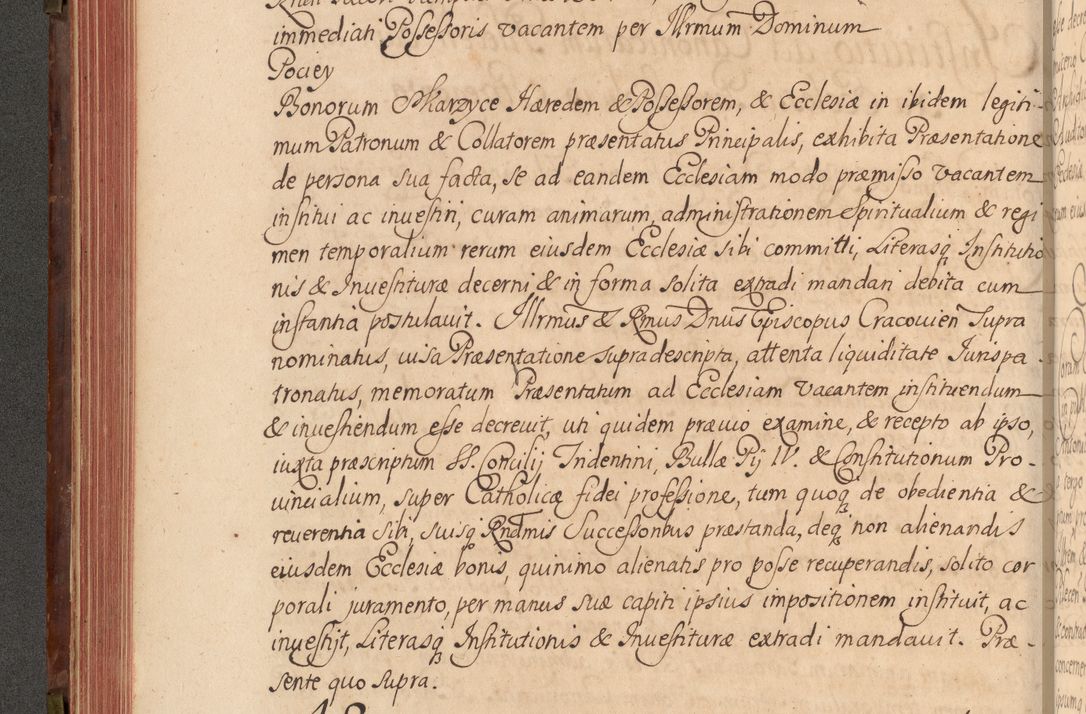 immediati Possessoris vacantem per Illrmum Dominum
Pociey
Bonorum Skarzyce Hæredem & Possessorem, & Ecclesiæ in ibidem legiti-
mum Patronum & Collatorem præsentatus Principalis, exhibita Præsentatione
de persona sua facta, se ad eandem Ecclesiam modo præmisso vacantem
institui ac inuestiri, curam animarum, administrationem Spiritualium & regi
men temporalium rerum eiusdem Ecclesiæ sibi committi, Literasq Institutio
nis & Inuestituræ decerni & in forma solita extradi mandari debita cum
instantia postulauit. Illrmus & Rmus Dnus Episcopus Cracouien Supra
nominatus, uisa Præsentatione supra descripta, attenta liquiditate Jurispa
tronatus, memoratum Præsentatum ad Ecclesiam vacantem instituendum
& inuestiendum esse decreuit, uti quidem præuio examine, & recepto ab ipso,
iuxta præscriptum SS. Concilij Tridentini, Bullæ Pij IV. & Constitutionum Pro-
uincialium, super Catholicæ fidei professione, tum quoq de obedientia &
reuerentia Sibi, suisq Rndmis Successoribus præstanda, deq non alienandis
eiusdem Ecclesiæ bonis, quinimo alienatis pro posse recuperandis, solito cor
porali juramento, per manus suæ capiti ipsius impositionem instituit, ac
inuestijt, Literasq Institutionis & Inuestituræ extradi mandauit. Præ-
sente quo supra.